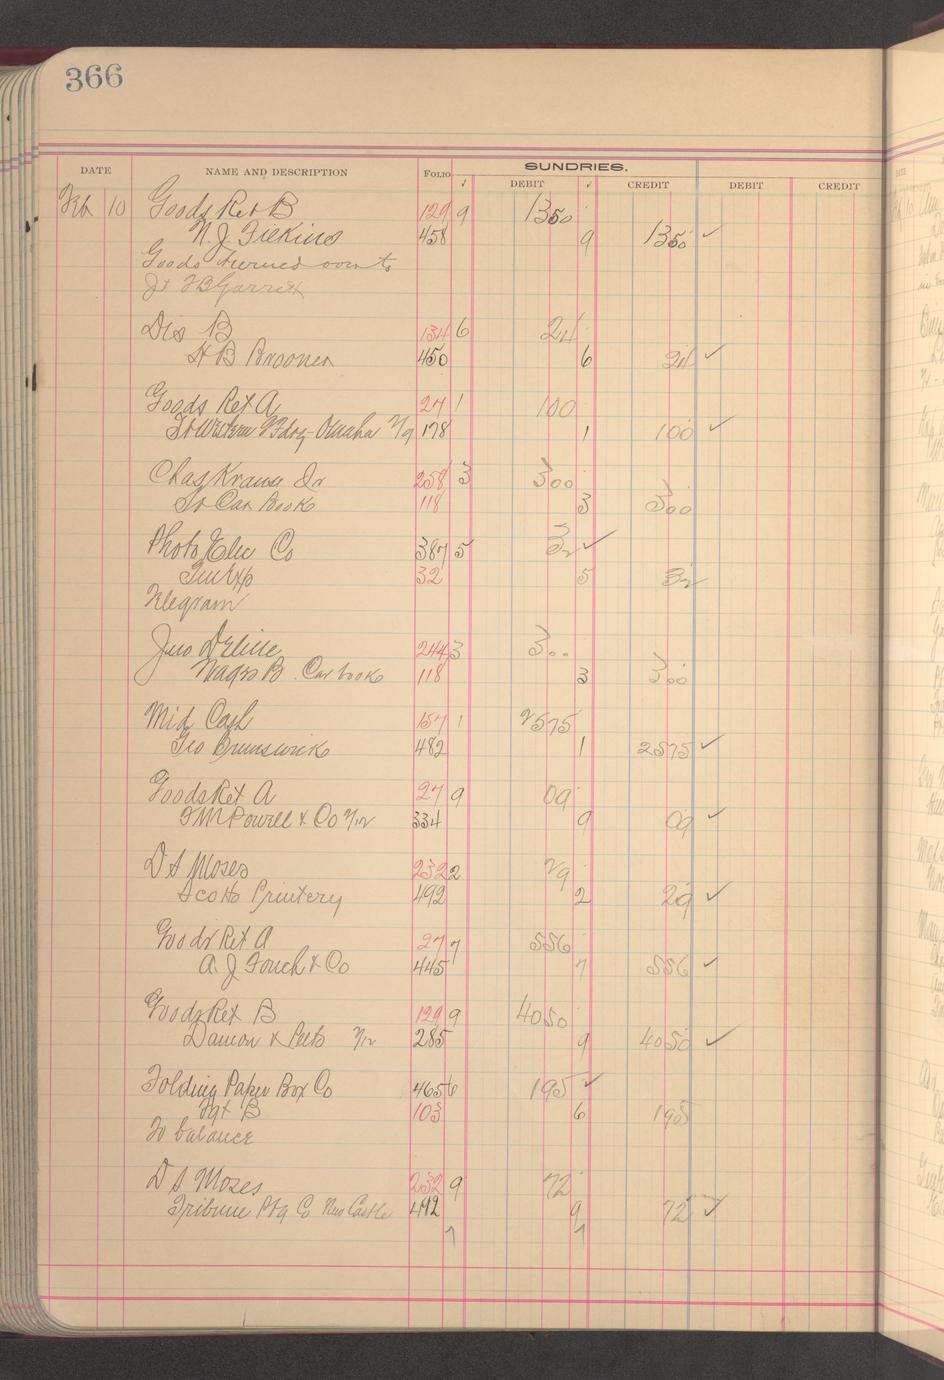 366
SUNDRIES.
DATE NAME AND DESCRIPTION FOLIO √ DEBIT √ CREDIT DEBIT CREDIT
Feb 10 Goods Ret B 129 9 1350
N. J. Filkins 458 9 1350 ✓
Goods turned over to
Jr F B Garrett
Dis B 134 6 24
H B Broomer 450 6 24 ✓
Goods Ret A 27 1 100
Gt Western Fdry Omaha 178 1 100 ✓
Chas Kraus Jr 258 3 300
St Car Book 118 3 300
Photo Elec Co 387 5 32 ✓
Gen Exp 32 5 32
Telegram
Jno Deline 244 3 300
Wages B. Car book 118 3 300
Mid Cash 157 1 2575
Geo Brunswick 482 1 2575 ✓
Goods Ret A 27 9 09
F M Powell & Co 2/12 334 9 09 ✓
D S Moses 232 2 29
Scotts Printery 492 2 29 ✓
Goods Ret A 27 7 556
A. J. Fouch & Co 445 7 556 ✓
Goods Ret B 129 9 4050
Damon & Peets 2/12 285 9 4050 ✓
Folding Paper Box Co 465 6 195 ✓
Frt B 103 6 195
To balance
D S Moses 232 9 72
Tribune Ptg Co New Castle 492 9 72 ✓
7 7